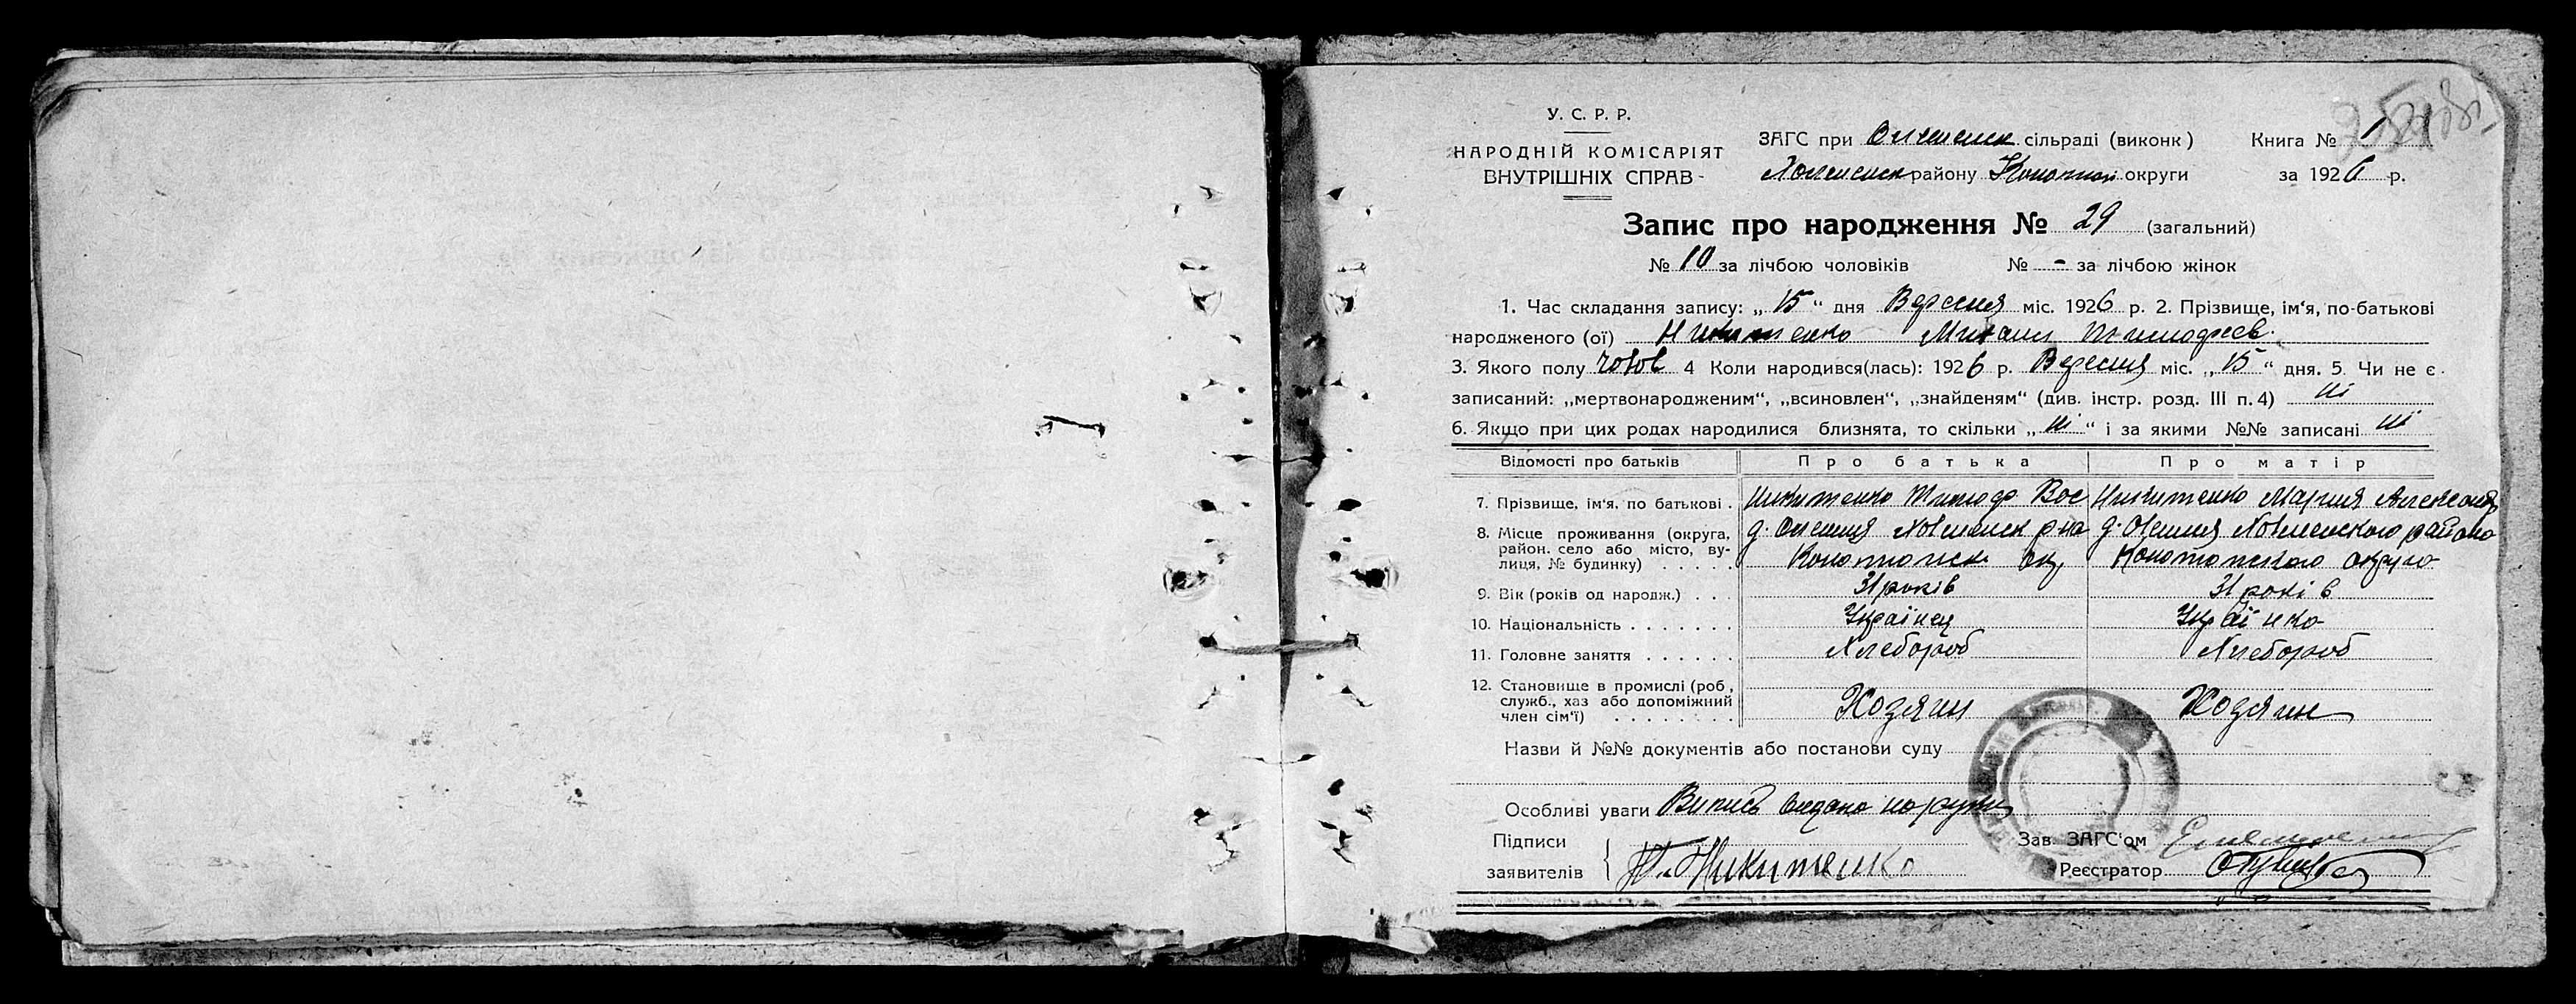 У. С. Р. Р.
НАРОДНІЙ КОМІСАРІЯТ
ВНУТРІШНІХ СПРАВ
ЗАГС при сільраді (виконк)
району Конотоп округи
Книга № 1
за 1926 р.
Запис про народження № 29 (загальний)
№ 10 за лічбою чоловіків № - за лічбою жінок
1. Час складання запису: „15“ дня Вересня міс. 1926 р. 2. Прізвище, ім‘я, по-батькові
народженого (ої) Никитенко Михаил Тимофеев.
3. Якого полу чолов 4 Коли народився(лась): 1926 р. Вересня міс. „15“ дня. 5. Чи не є
записаний: „мертвонародженим“, „всиновлен“, „знайденям“ (див. інстр. розд. III п. 4) ні
6. Якщо при цих родах народилися близнята, то скільки „ні“ і за якими №№ записані ні
Відомості про батьків Про батька Про матір
7. Прізвище, ім‘я, по батькові . Никитенко Тимофе Вас Никитенко Мария Александ
8. Місце проживання (округа, район. село або місто, вулиця, № будинку) . . . . .
д. района
Конотопск ок Конотопского округа
9. Вік (років од народж.) . . . 31 років 31 років
10. Національність . . . . . . . Українец Українка
11. Головне заняття . . . . . . Хлебороб Хлебороб
12. Становище в промислі (роб,
служб., хаз або допоміжний
член сім‘ї) . . . . . . . . Хозяин Хозяин
Назви й №№ документів або постанови суду
Особливі уваги Випись видано на руки
Підписи
заявителів Т. Никитенко
Зав. ЗАГС‘ом
Реєстратор